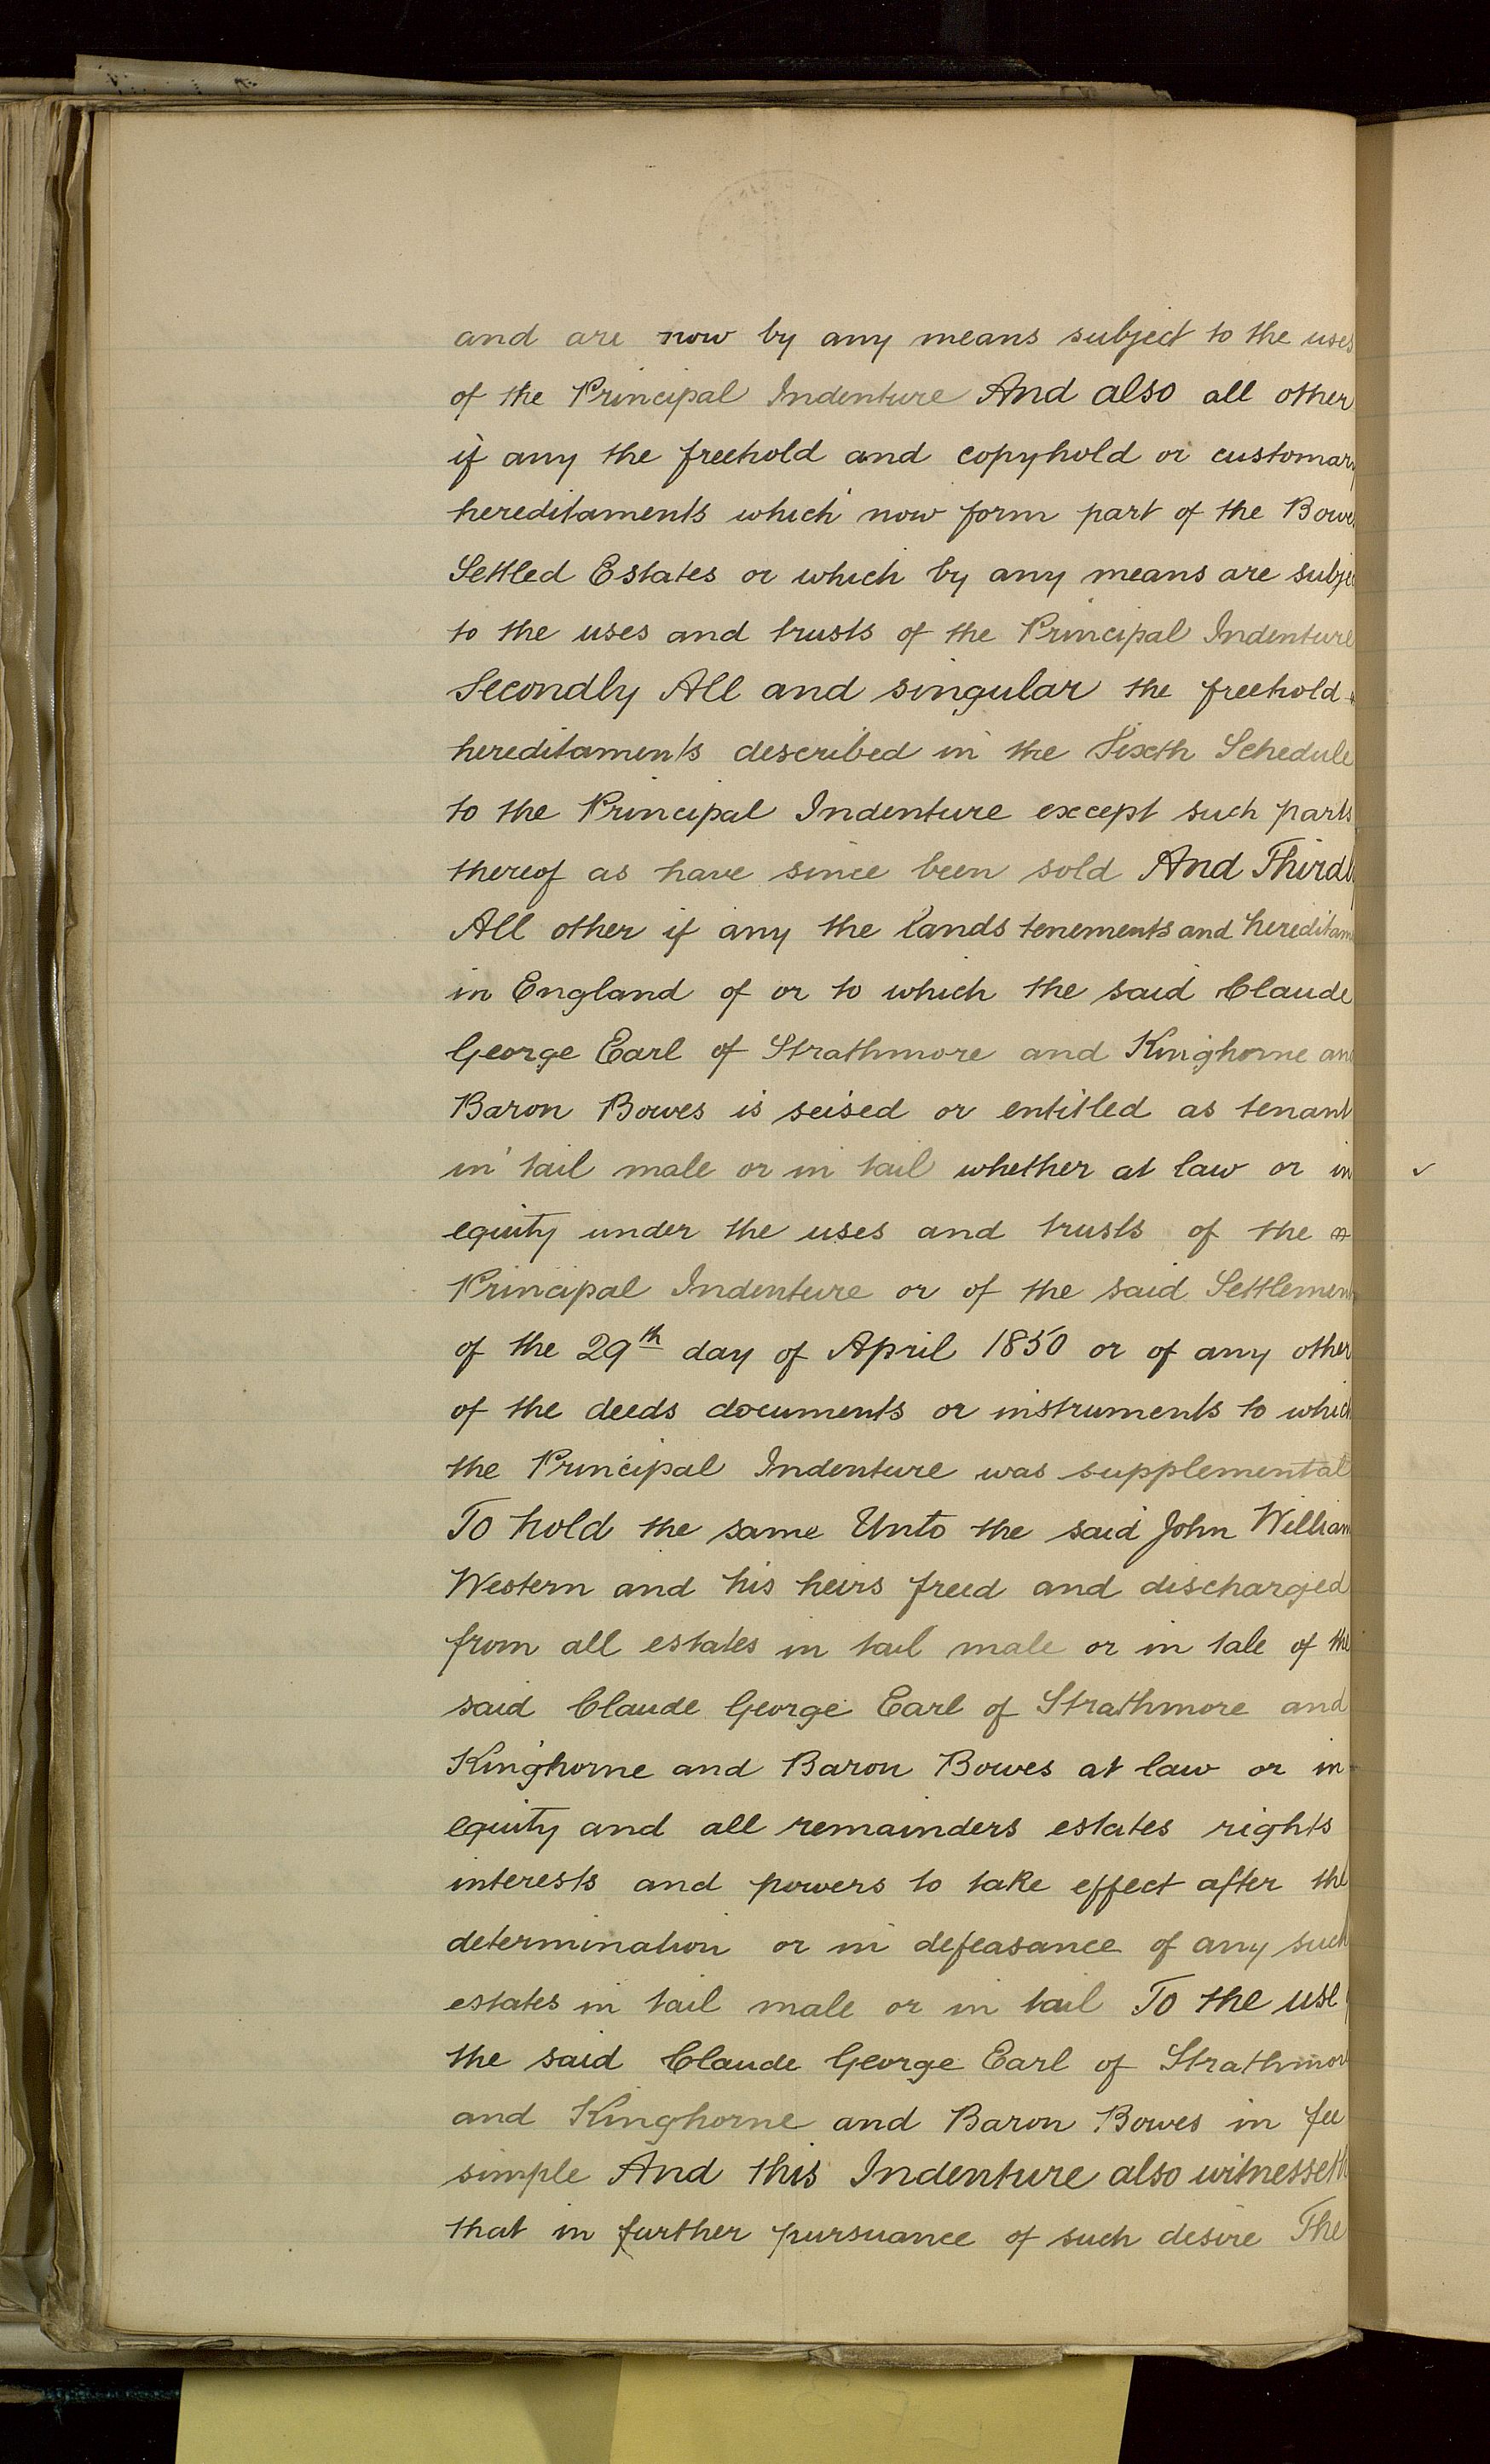 and are now by any means subject to the uses
of the Principal Indenture And also all other
if any the freehold and copyhold or customary
hereditaments which now form part of the Bowes
Settled Estates or which by any means are subje
to the uses and trusts of the Principal Indenture
Secondly All and singular the freehold
hereditaments described in the Sixth Schedule
to the Principal Indenture except such parts
thereof as have since been sold And Thirdly
All other if any the lands tenements and hereditam
in England of or to which the said Claude
George Earl of Strathmore and Kinghorne and
Baron Bowes is seised or entitled as tenant
in tail male or in tail whether at law or in
equity under the uses and trusts of the
Principal Indenture or of the said Settlement
of the 29th day of April 1850 or of any other
of the deeds documents or instruments to which
the Principal Indenture was supplemental
To hold the same Unto the said John William
Western and his heirs freed and discharged
from all estates in tail male or in tale of the
said Claude George Earl of Strathmore and
Kinghorne and Baron Bowes at law or in
equity and all remainders estates rights
interests and powers to take effect after the
determination or in defeasance of any such
estates in tail male or in tail To the use
the said Claude George Earl of Strathmore
and Kinghorne and Baron Bowes in fee
simple And this Indenture also witnesseth
that in further pursuance of such desire The